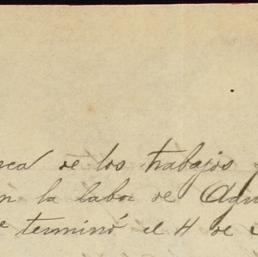 de los trabajos
la labor de
terminó el 4 de